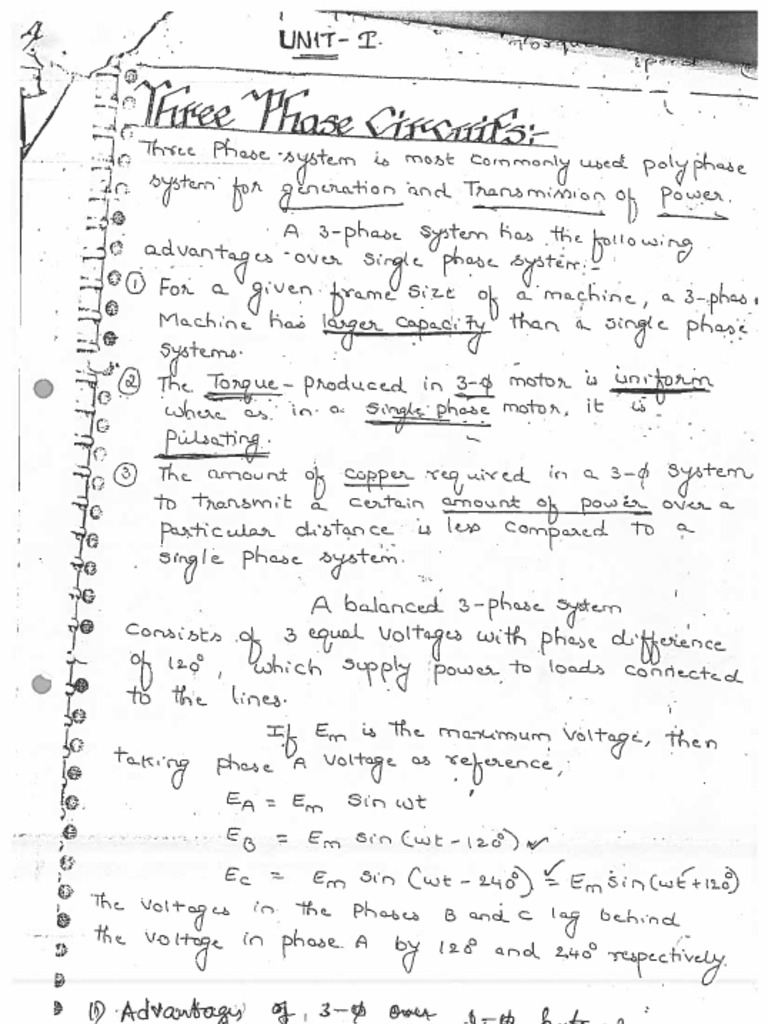 UNIT - I.
Torque
speed
Three Phase Circuits:-
Three Phase system is most commonly used polyphase
system for generation and Transmission of Power.
A 3-phase system has the following
advantages over single phase system:-
① For a given frame size of a machine, a 3-phas
Machine has larger capacity than a single phase
systems.
② The Torque - produced in 3-ϕ motor is uniform
where as in a single phase motor, it is
pulsating.
③ The amount of copper required in a 3-ϕ system
to transmit a certain amount of power over a
particular distance is less compared to a
single phase system.
A balanced 3-phase system
consists of 3 equal voltages with phase difference
of 120°, which supply power to loads connected
to the lines.
If Em is the maximum voltage, then
taking phase A voltage as reference,
EA = Em Sin wt
EB = Em sin (wt - 120°) ✓
Ec = Em sin (wt - 240°) ✓ = Em sin (wt + 120°)
The voltages in the Phases B and C lag behind
the voltage in phase A by 120° and 240° respectively.
1) Advantages of 3-ϕ over 1-ϕ